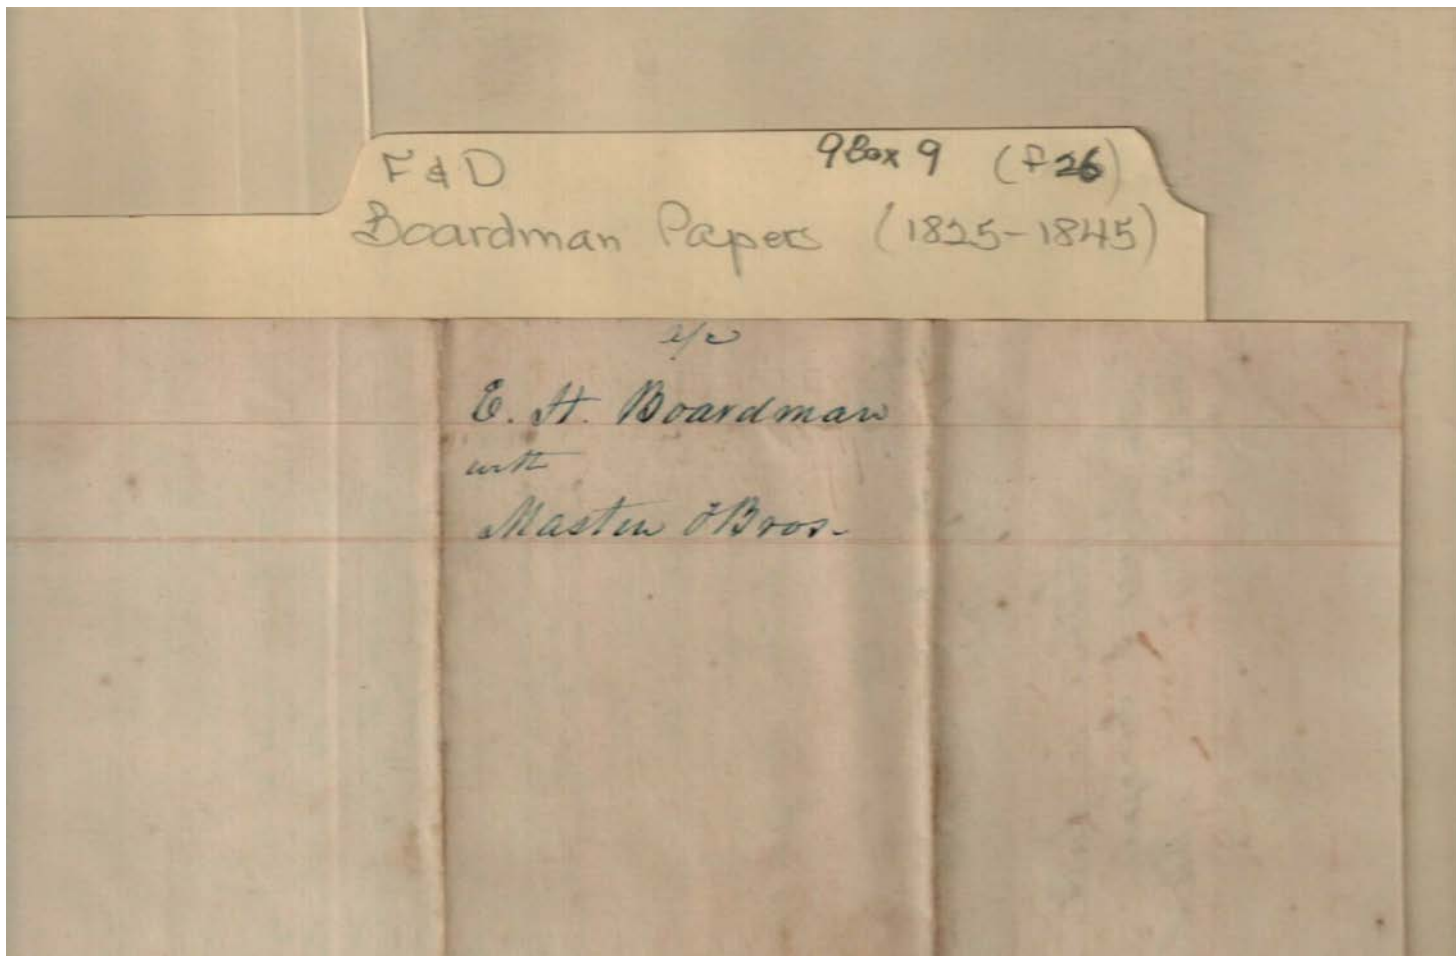 F & D 9 Box 9 (f 26)
Boardman Papers (1825-1845)
a/c
E. H. Boardman
with
Masten & Bros.